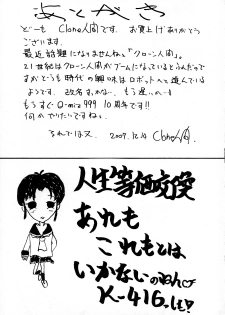 あとがき
どーも Clone人間です。お買上げありがとう
ございます。
最近話題になりませんね。「クローン人間」。
21世紀はクローン人間がブームになっていると ふんだので
すがどうも時代の興味はロボットへと進んでいる
ようです。改名すっかな。もう遅いか…
もうすぐQ-mix 999 10周年です!!
何かやりたいですねぇ。
それではまた 2009.12.14 Clone人間.
人生等価交換
あれも
これもとは
いかないのねん
K-416っしも!